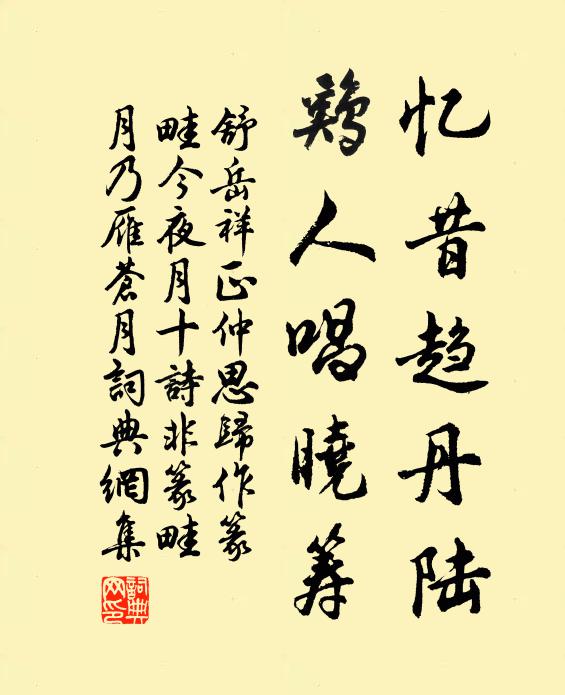 忆昔趋丹陆
鸡人唱晓筹
舒岳祥正仲思歸作篆
畦今夜月十詩非篆畦
月乃雁蒼月詞典網集
詞典网印